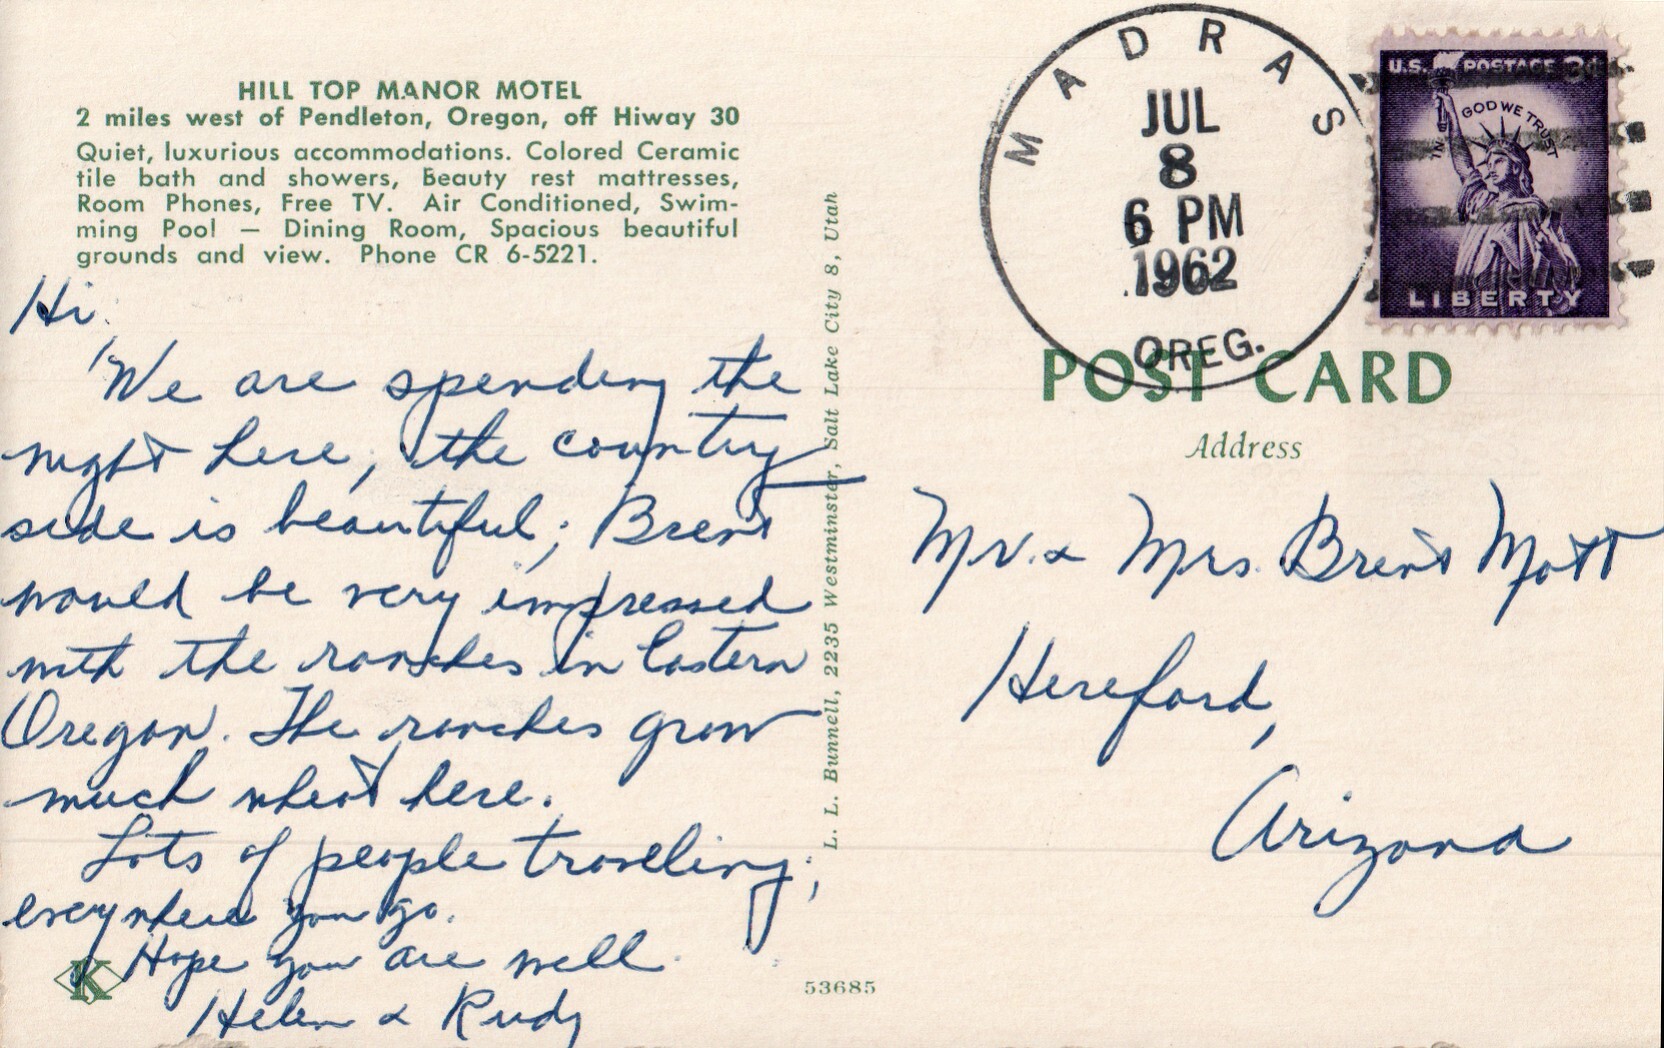 HILL TOP MANOR MOTEL
2 miles west of Pendleton, Oregon, off Hiway 30
Quiet, luxurious accommodations. Colored Ceramic
tile bath and showers, Beauty rest mattresses,
Room Phones, Free TV. Air Conditioned, Swim-
ming Pool — Dining Room, Spacious beautiful
grounds and view. Phone CR 6-5221.
Hi.
We are spending the
night here, the country
side is beautiful; Brent
would be very impressed
with the ranches in Eastern
Oregon. The ranches grow
much wheat here.
Lots of people traveling,
everywhere you go.
Hope you are well.
Helen & Rudy
K
L. L. Bunnell, 2235 Westminster, Salt Lake City 8, Utah
53685
MADRAS
JUL
8
6 PM
1962
OREG.
U.S. POSTAGE 3¢
IN GOD WE TRUST
LIBERTY
POST CARD
Address
Mr. & Mrs. Brent Mott
Hereford,
Arizona